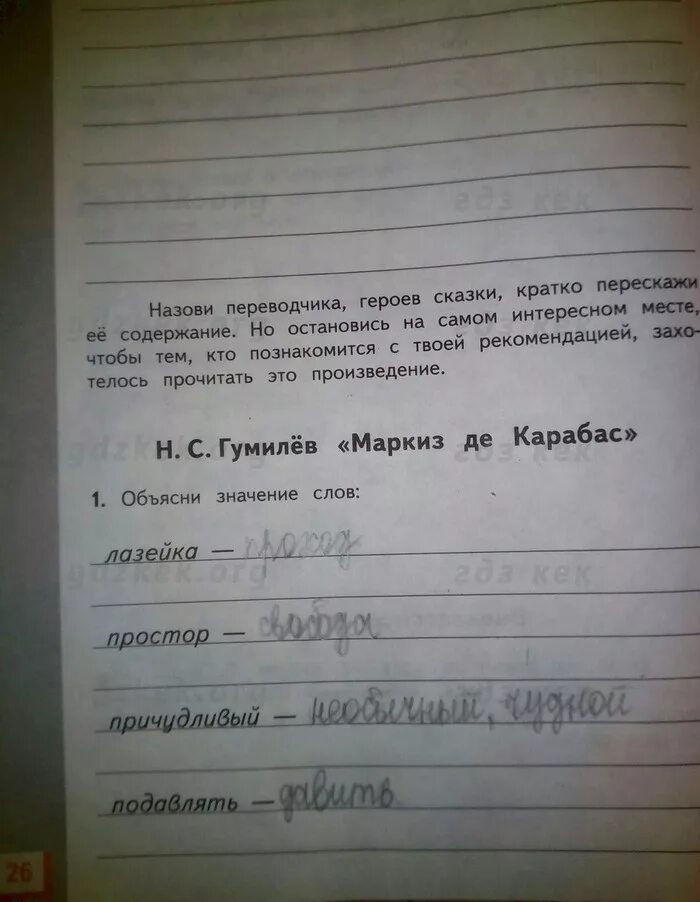 гдз кек
gdzkek.org гдз кек
Назови переводчика, героев сказки, кратко перескажи
её содержание. Но остановись на самом интересном месте,
чтобы тем, кто познакомится с твоей рекомендацией, захо-
телось прочитать это произведение.
Н. С. Гумилёв «Маркиз де Карабас»
gdzkek.org гдз кек
1. Объясни значение слов:
лазейка — проход
gdzkek.org гдз кек
простор — свобода
причудливый — необычный, чудной
подавлять — давить
26